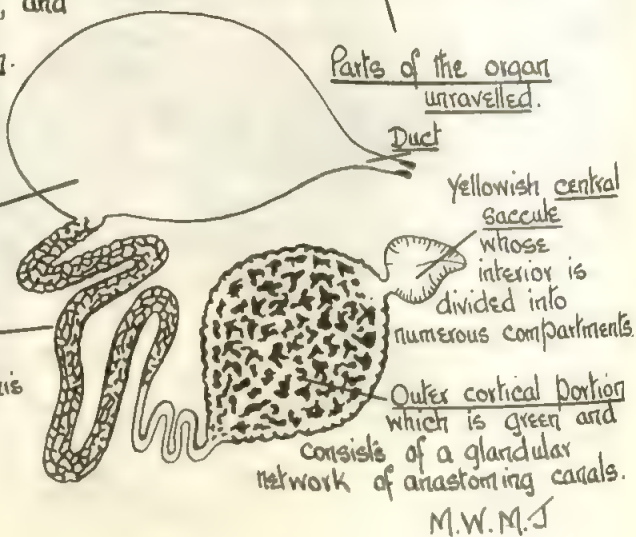 , and
Parts of the organ
unravelled.
Duct
Yellowish central
saccule
whose
interior is
divided into
numerous compartments.
Outer cortical portion
which is green and
consists of a glandular
network of anastoming canals.
M.W.M.J